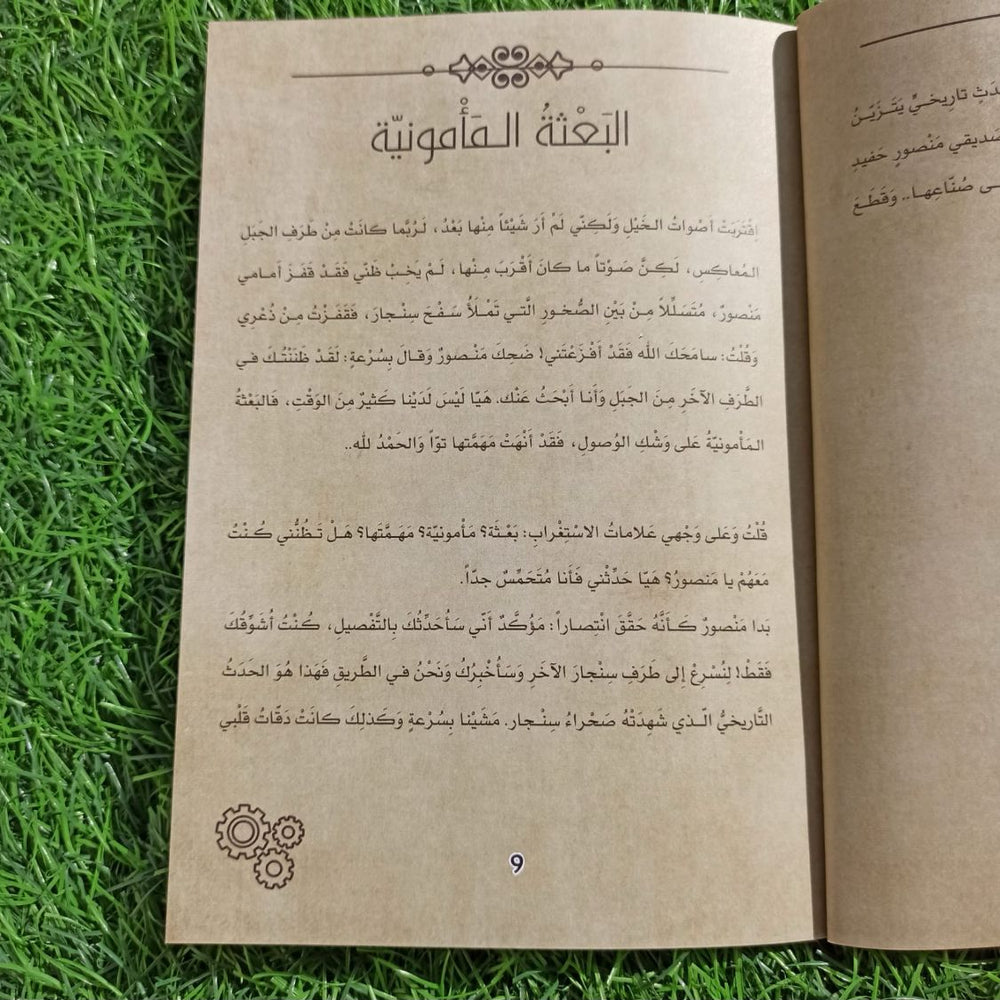 البَعْثةُ المَأْمونيّة
اقْتَرَبَتْ أصْواتُ الخَيْلِ وَلَكِنّي لَمْ أرَ شَيْئاً مِنْها بَعْدُ، لَرُبَّما كانَتْ مِنْ طَرَفِ الجَبَلِ
المُعاكِسِ، لَكِنَّ صَوْتاً ما كانَ أقْرَبَ مِنْها، لَمْ يَخِبْ ظَنّي فَقَدْ قَفَزَ أمامي
مَنْصورٌ، مُتَسَلِّلاً مِنْ بَيْنِ الصُّخورِ الَّتي تَمْلَأُ سَفْحَ سِنْجارَ، فَقَفَزْتُ مِنْ ذُعْري
وَقُلْتُ: سامَحَكَ اللهُ فَقَدْ أفْزَعْتَني! ضَحِكَ مَنْصورٌ وَقالَ بِسُرْعةٍ: لَقَدْ ظَنَنْتُكَ في
الطَّرَفِ الآخَرِ مِنَ الجَبَلِ وَأنا أبْحَثُ عَنْك. هَيّا لَيْسَ لَدَيْنا كَثيرٌ مِنَ الوَقْتِ، فَالبَعْثةُ
المَأْمونيّةُ عَلى وَشْكِ الوُصولِ، فَقَدْ أنْهَتْ مَهَمَّتها توّاً وَالحَمْدُ لله..
قُلْتُ وَعَلى وَجْهي عَلاماتُ الاسْتِغْرابِ: بَعْثَة؟ مَأْمونيّة؟ مَهَمَّتَها؟ هَلْ تَظُنُّني كُنْتُ
مَعَهُمْ يا مَنصورُ؟ هَيّا حَدِّثْني فَأنا مُتَحَمِّسٌ جدّاً.
بَدا مَنْصورٌ كَأنَّهُ حَقَّقَ انْتِصاراً: مَؤكَّدٌ أنّي سَأُحَدِّثُكَ بِالتَّفْصيل، كُنْتُ أُشَوِّقُكَ
فَقَطْ! لِنُسْرِعْ إلى طَرَفِ سِنْجارَ الآخَرِ وَسَأُخْبِرُكَ وَنَحْنُ في الطَّريقِ فَهَذا هُوَ الحَدَثُ
التَّاريخيُّ الّذي شَهِدَتْهُ صَحْراءُ سِنْجار. مَشَيْنا بِسُرْعةٍ وَكَذلِكَ كانَتْ دَقّاتُ قَلْبي
9
تاريخيٍّ يَتَزَيَّنُ
صَديقي مَنْصورٍ حَفيدِ
صُنّاعِها.. وَقَطَعَ